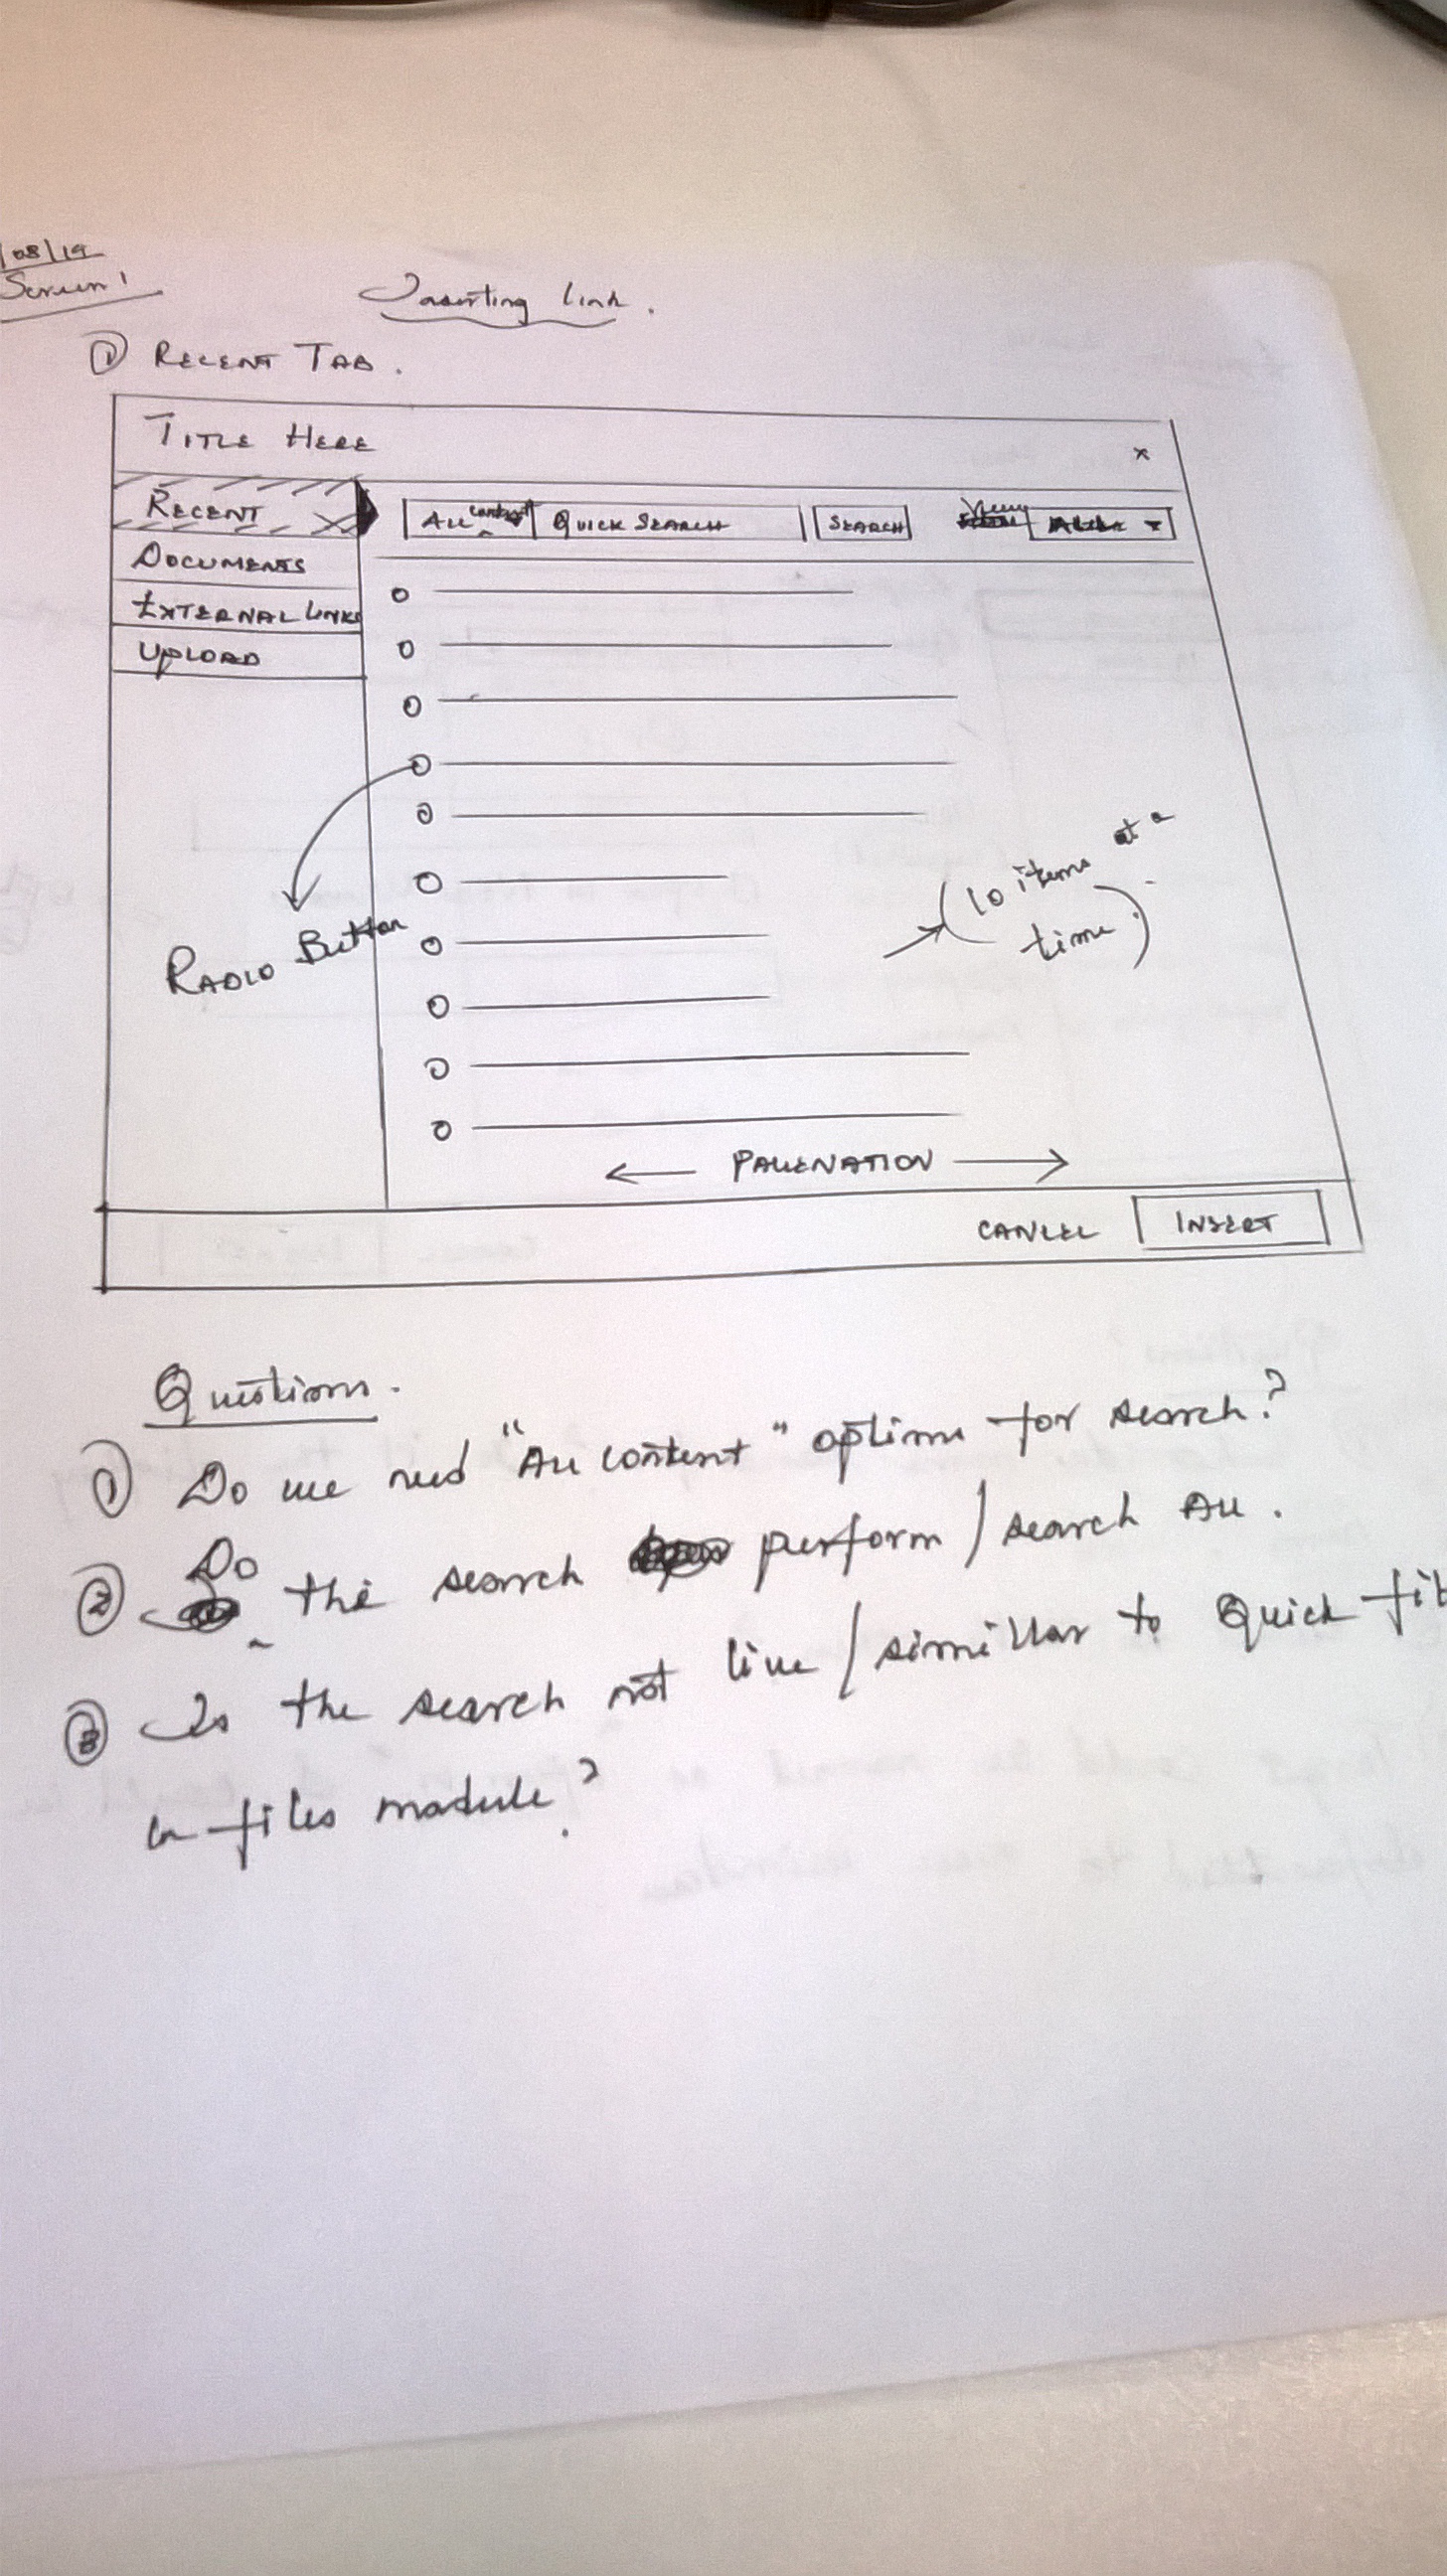 /08/19
Screen 1
Inserting link.
① RECENT TAB.
TITLE HERE
x
RECENT
All content
QUICK SEARCH
SEARCH
View
DOCUMENTS
EXTERNAL LINKS
UPLOAD
(10 items at a
time)
RADIO Button
PAGENATION
CANCEL
INSERT
Questions.
① Do we need "All content" options for search?
② Do the search perform / search All.
③ Is the search not live / similar to Quick
in files module?